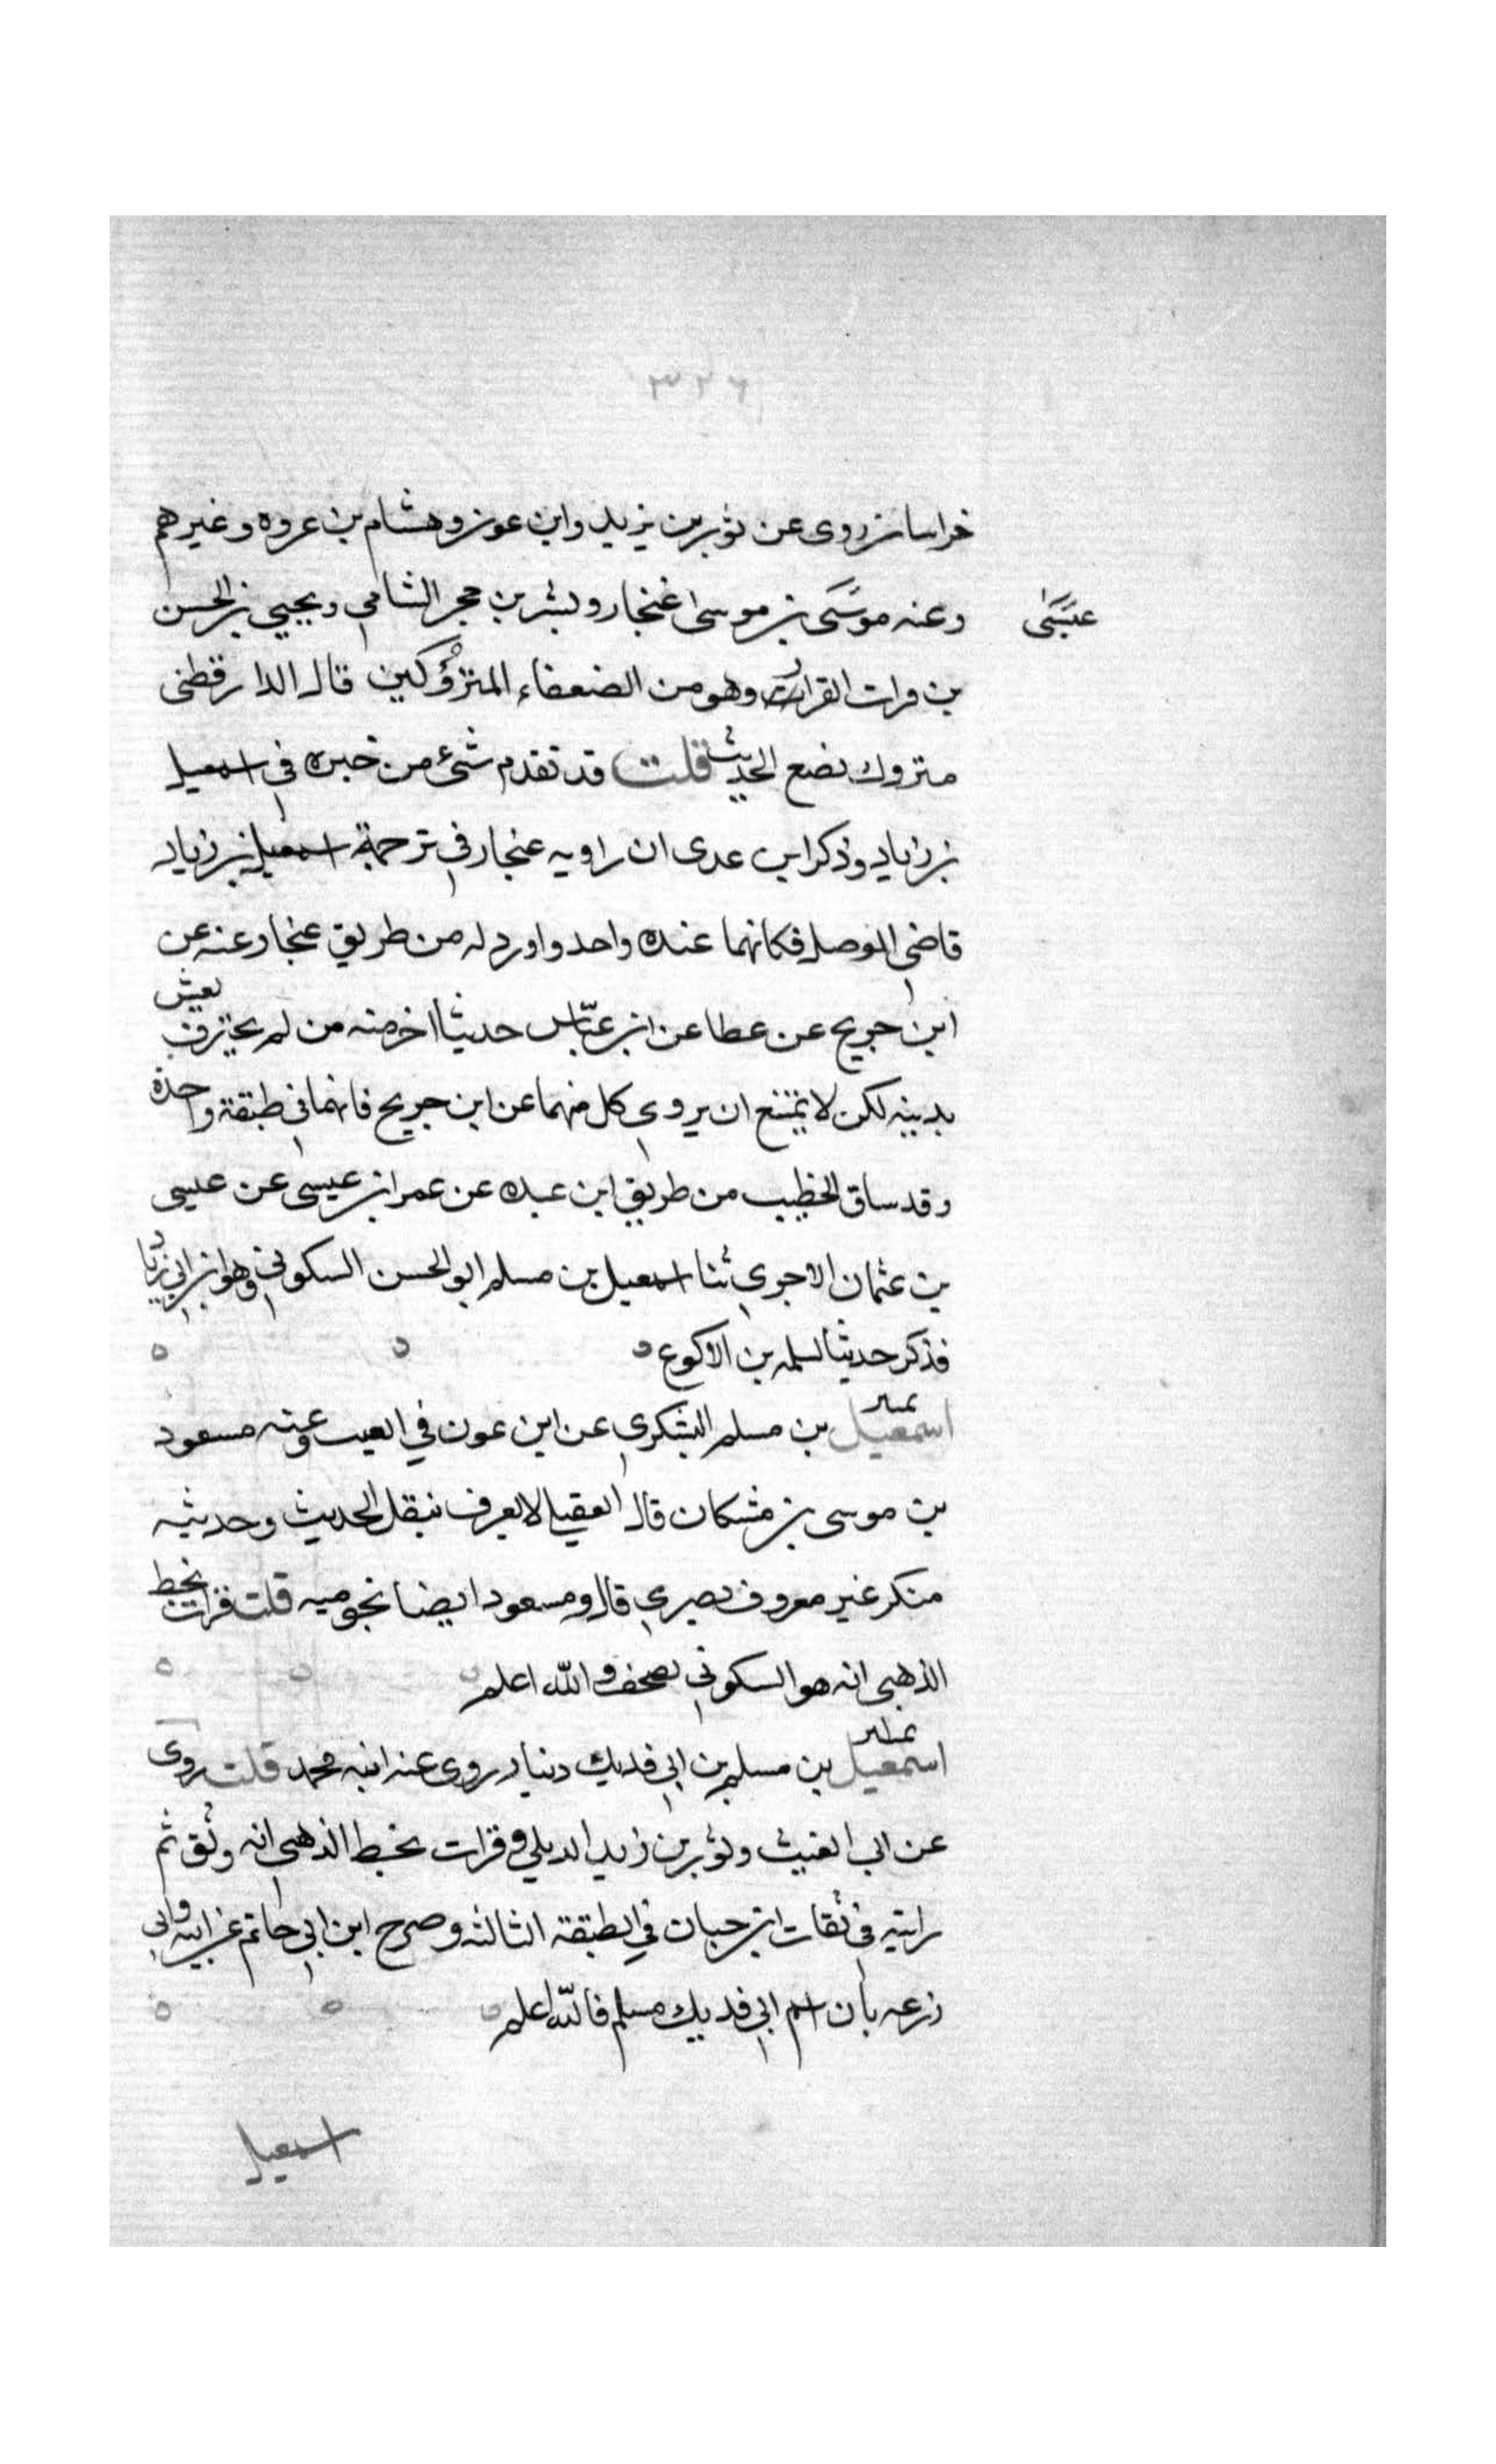 ٣٢٦
خراسان روى عن ثور بن يزيد وابن عون وهشام بن عروه وغيرهم
وعنه موسَى بن موسى غنجار وبشر بن حجر الشامي ويحيي بن الحسن
عيسَى
بن فرات القزاز وهو من الضعفاء المتروكين قال الدارقطنى
متروك يضع الحديث قلت قد تقدم شئ من خبره فى اسمعيل
بن زياد وذكر ابن عدى ان راويه غنجار في ترجمة اسمعيل بن زياد
قاضي الموصل فكانهما عنده واحد واورد له من طريق غنجار عنه عن
ابن جريج عن عطا عن ابن عبّاس حديثا اخر متنه من لم يحترف يعيش
بدينه لكن لا يمتنع ان يروي كل منهما عن ابن جريج فانهما في طبقة واحدة
وقد ساق الخطيب من طريق ابن عبده عن عمر ابن عيسى عن عيسى
بن عثمان الاجري ثنا اسمعيل بن مسلم ابو الحسن السكوني وهو ابن ابي زياد
فذكر حديثا لسلمه بن الاكوع
اسمعيل بن مسلم اليشكري عن ابن عون في العيب وعنه مسعود
بن موسى بن مشكان قال العقيلي لا يعرف بنقل الحديث وحديثه
منكر غير معروف بصري قال ومسعود ايضا نحو منه قلت قرات بخط
الذهبى انه هو السكوني تصحف والله اعلم
اسمعيل بن مسلم بن ابي فديك دينار روى عنه ابنه محمد قلت روى
عن ابي الغيث وثور بن زيد الديلي وقرات بخط الذهبى انه وثق ثم
رايته في ثقات ابن حبان في الطبقة الثالثه وصرح ابن ابي حاتم عن ابيه وابي
زرعه بان اسم ابي فديك مسلم فالله اعلم
اسمعيل